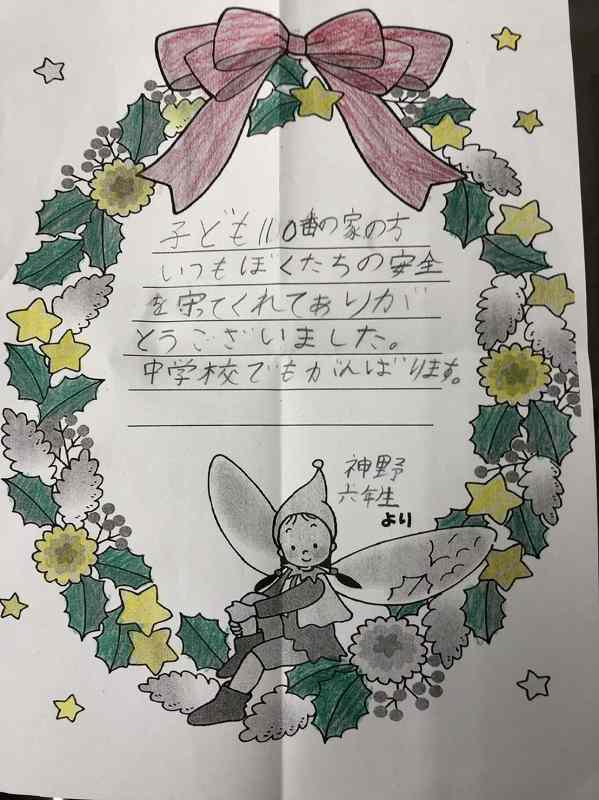 子ども110番の家の方
いつもぼくたちの安全
を守ってくれてありが
とうございました。
中学校でもがんばります。
神野
六年生
より